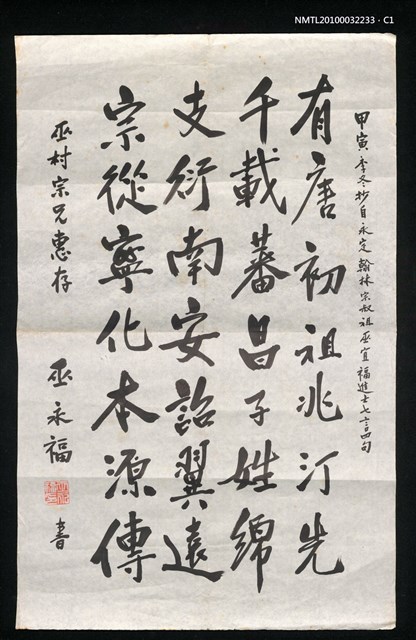 NMTL20100032233 - C1
甲寅季冬抄自永定翰林宗叔祖巫宜福進士七言四句
有唐初祖兆汀先
千載蕃昌子姓綿
支衍南安詒翼遠
宗從寧化本源傳
巫村宗兄惠存
巫永福 書